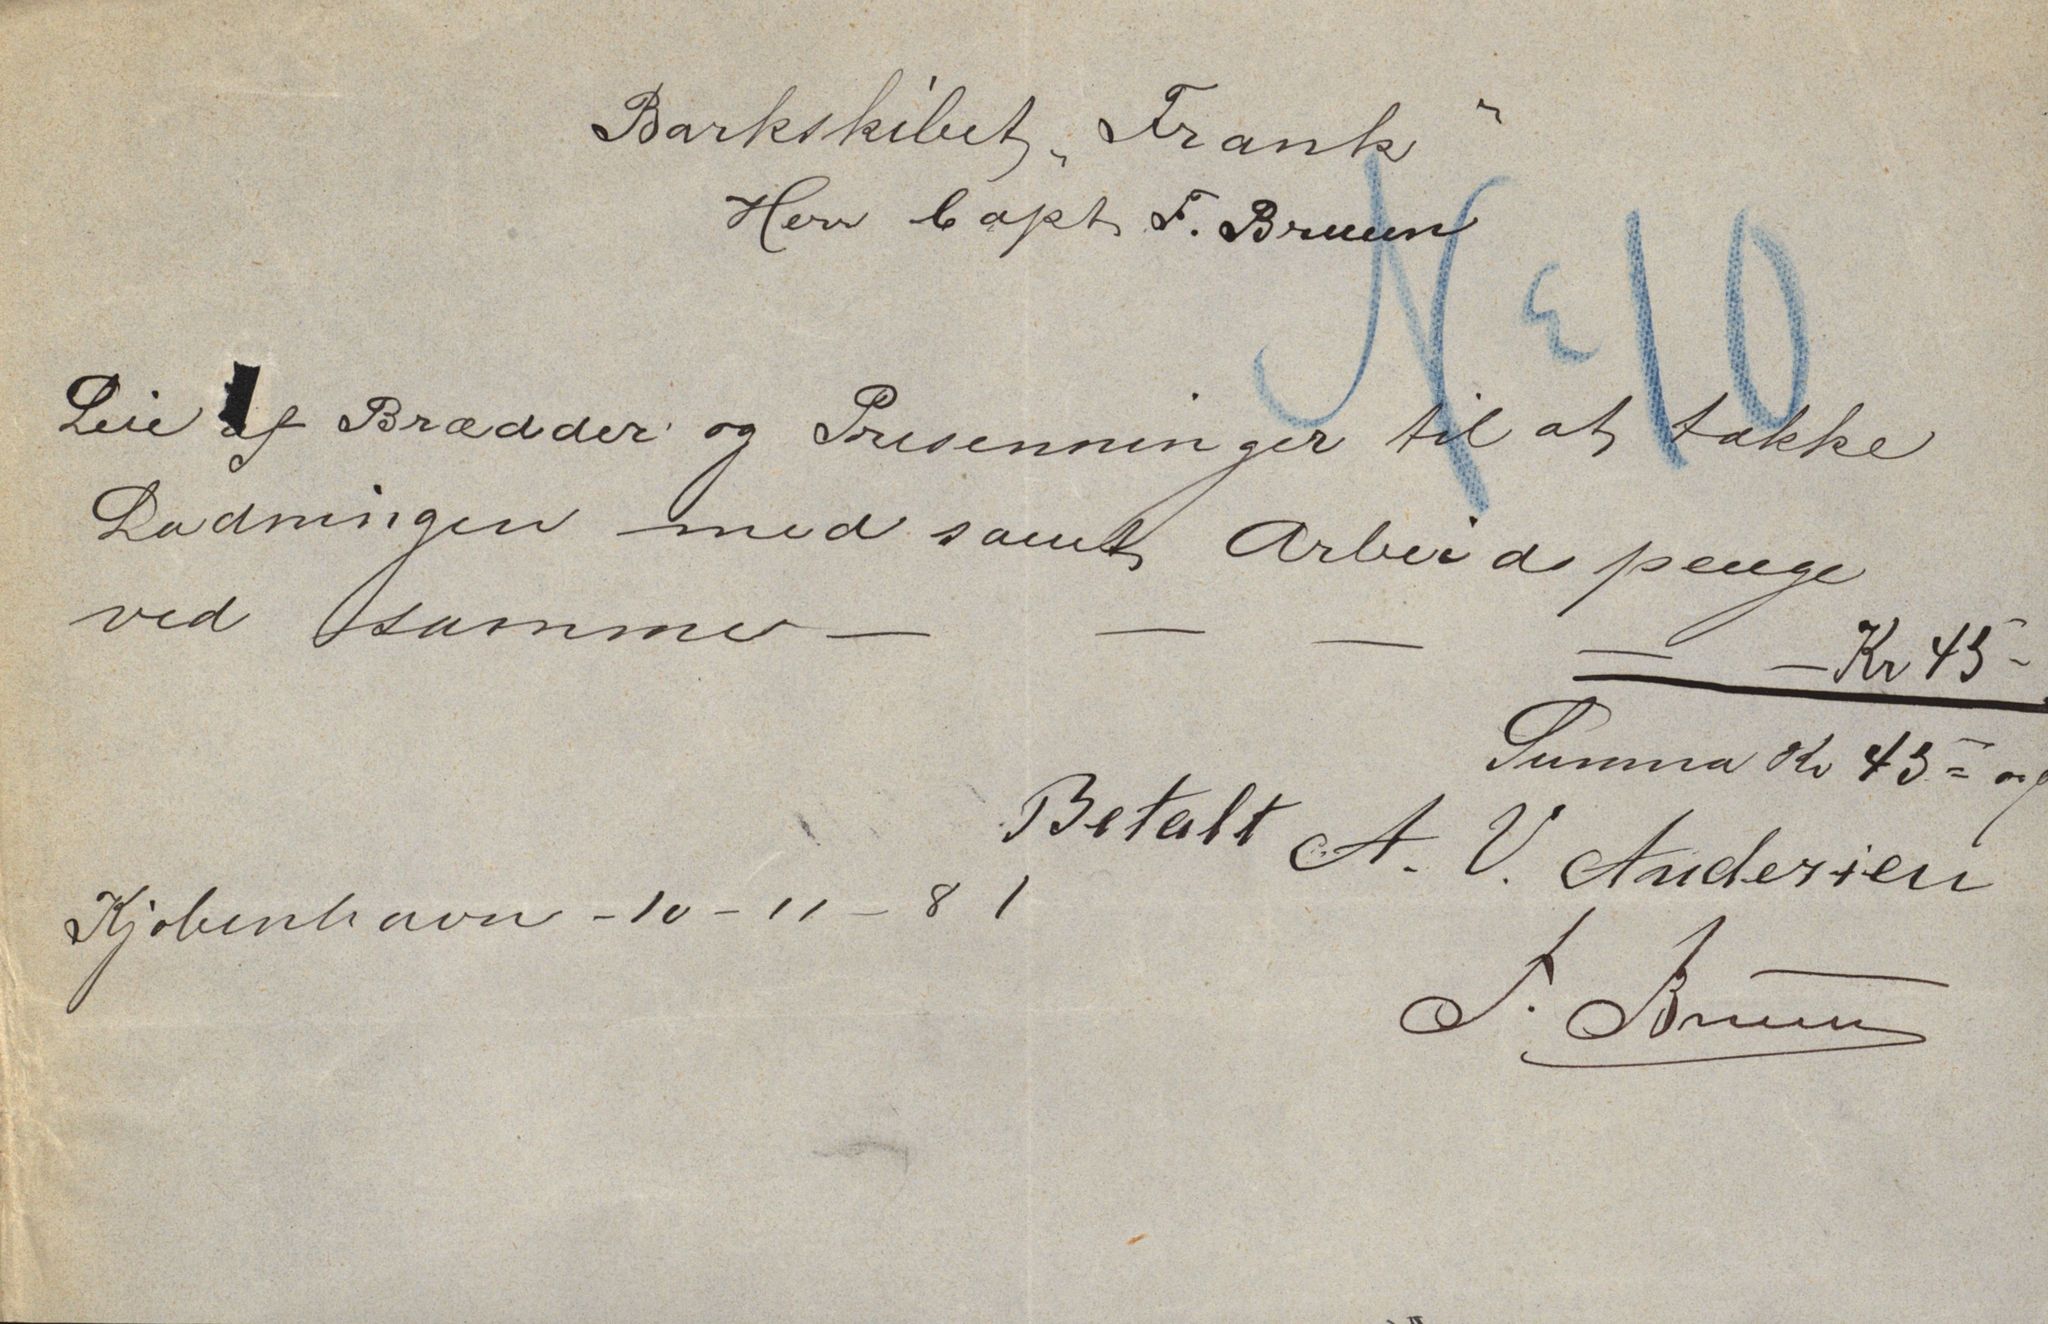 Barkskibet „Frank"
Herr Capt F. Bruun
No 10
Leie af Brædder og Presenninger til at takke
Ladningen med samt Arbeidspenge
ved samme — — — — — Kr 45 -
Summa Kr 45 =
Betalt A. V. Andersen
Kjøbenhavn - 10 - 11 - 81
F. Bruun